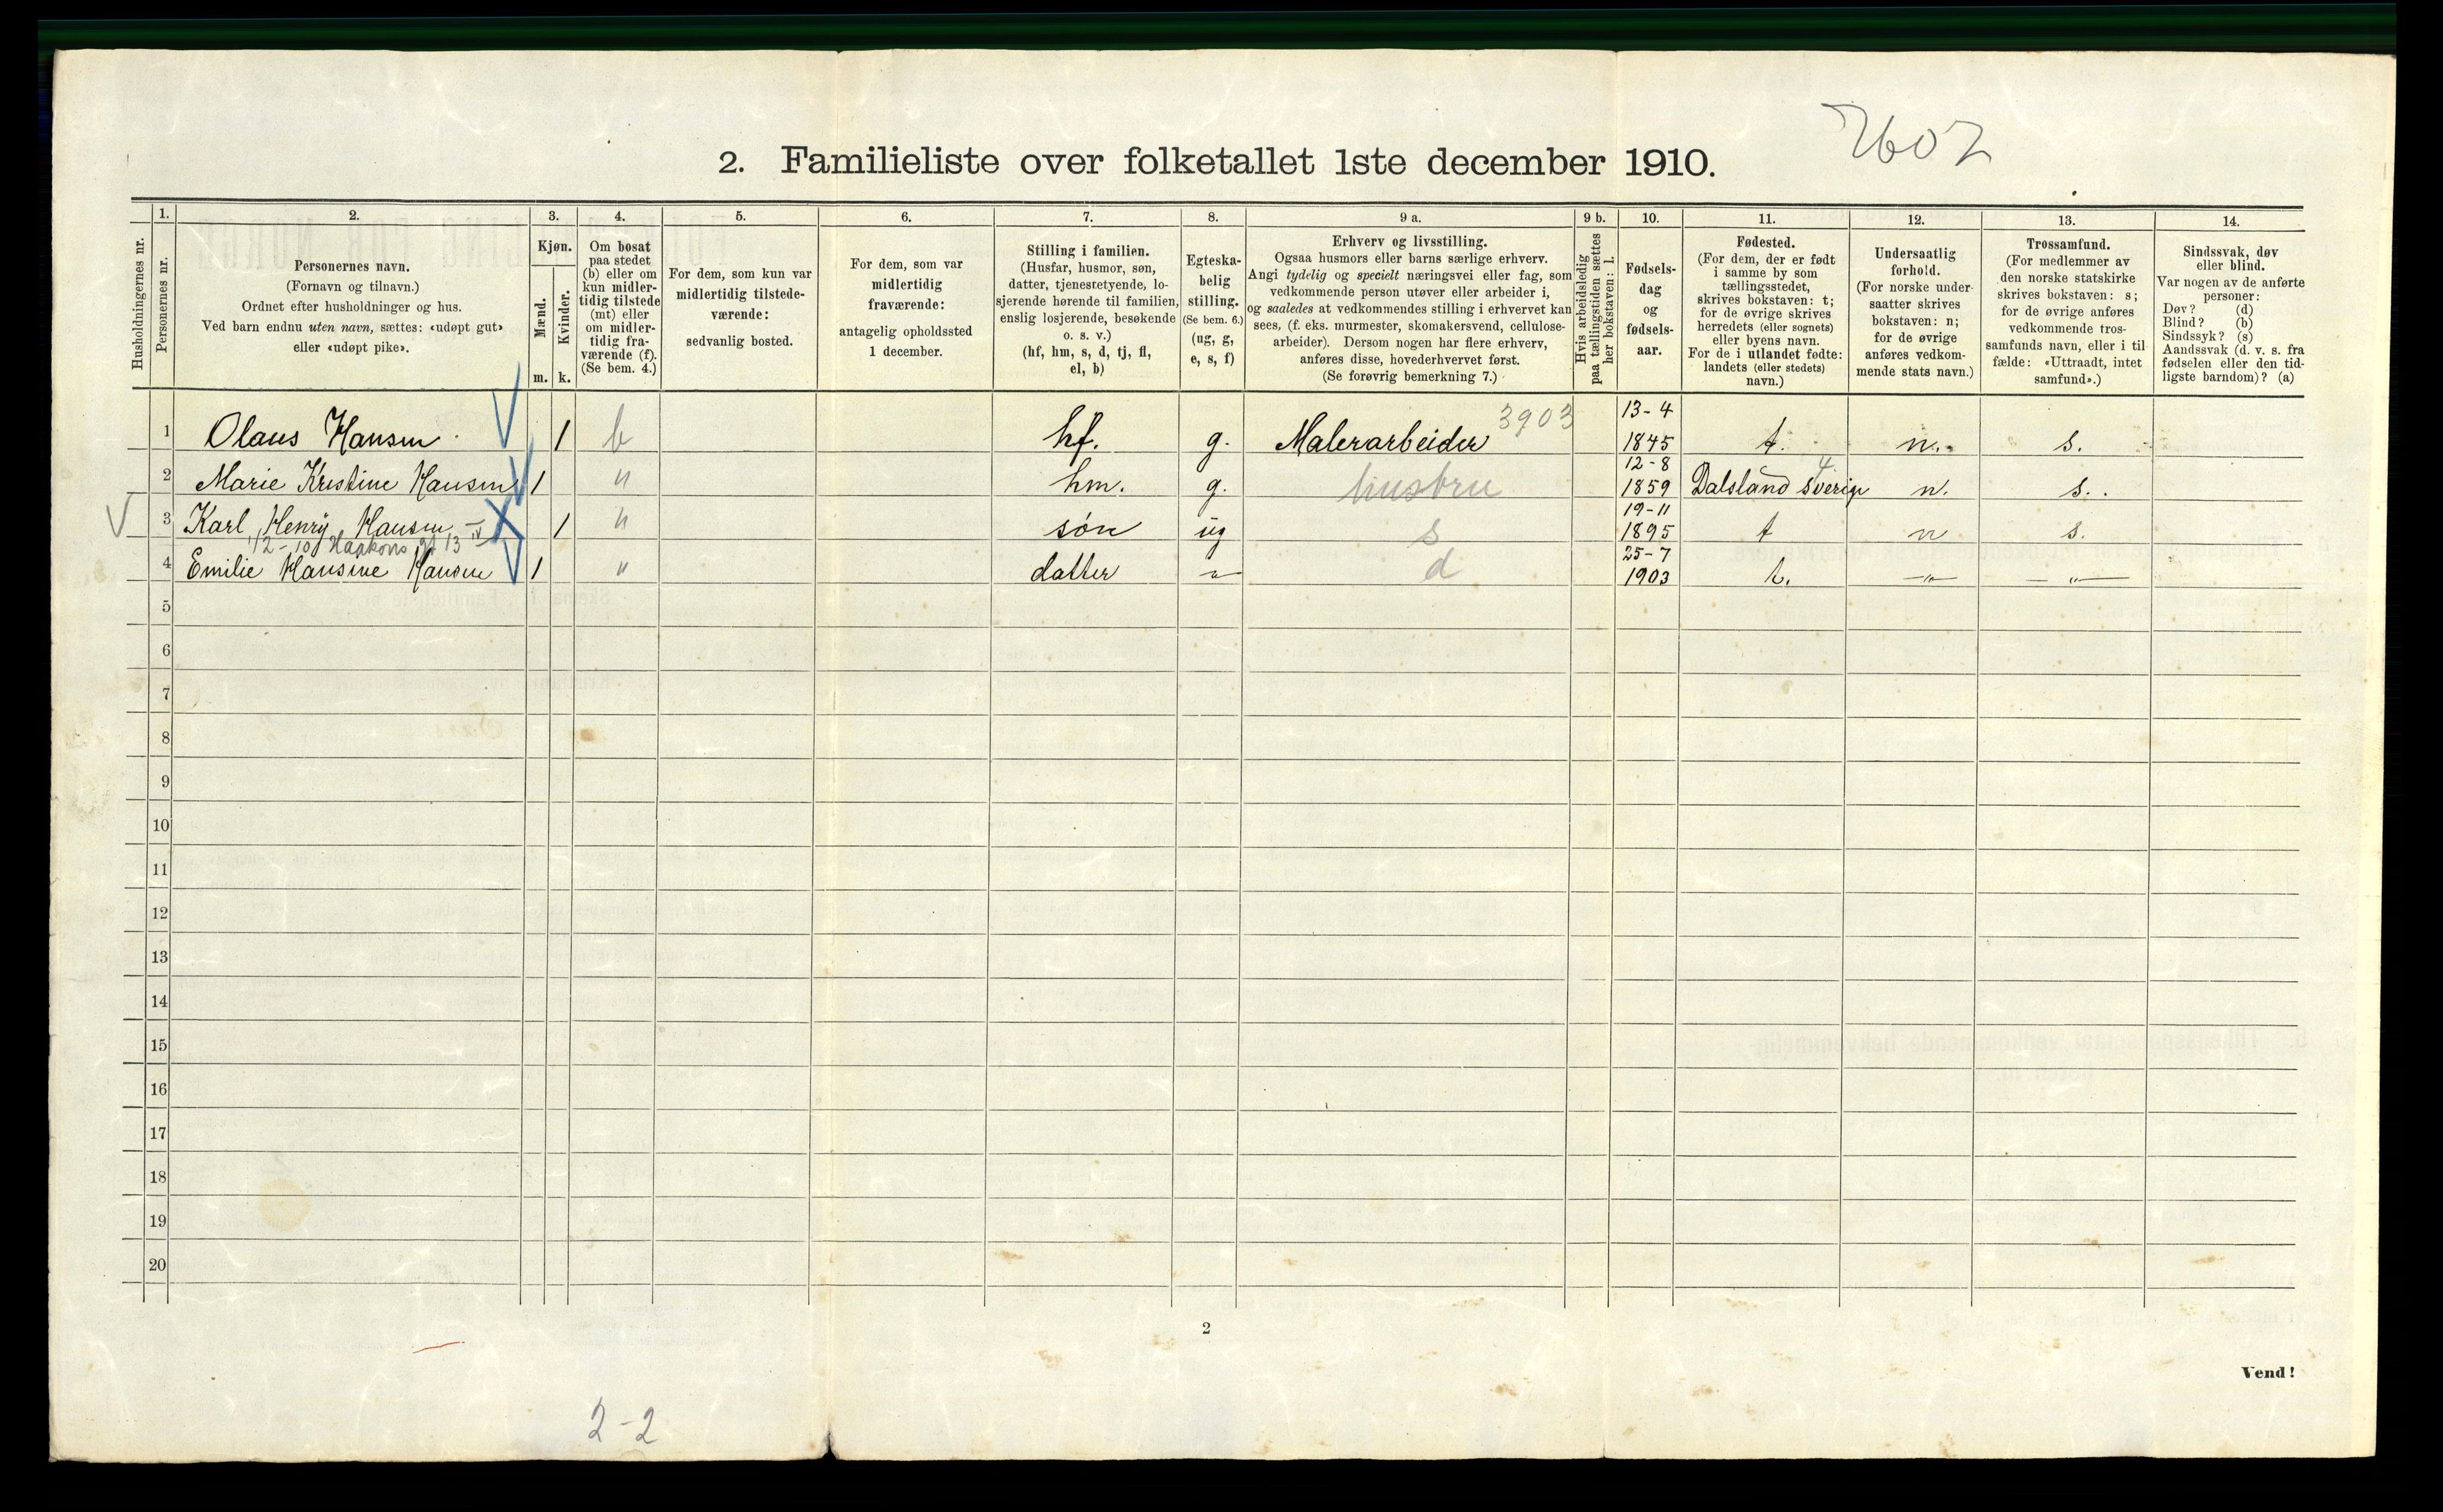 2602
2. Familieliste over folketallet 1ste december 1910.
Husholdningernes nr.
1.
Personernes nr.
2.
Personernes navn.
(Fornavn og tilnavn.)
Ordnet efter husholdninger og hus.
Ved barn endnu uten navn, sættes: «udøpt gut»
eller «udøpt pike».
3.
Kjøn.
Mænd.
Kvinder.
m. k.
4.
Om bosat
paa stedet
(b) eller om
kun midler-
tidig tilstede
(mt) eller
om midler-
tidig fra-
værende (f).
(Se bem. 4.)
5.
For dem, som kun var
midlertidig tilstede-
værende:
sedvanlig bosted.
6.
For dem, som var
midlertidig
fraværende:
antagelig opholdssted
1 december.
7.
Stilling i familien.
(Husfar, husmor, søn,
datter, tjenestetyende, lo-
sjerende hørende til familien,
enslig losjerende, besøkende
o. s. v.)
(hf, hm, s, d, tj, fl,
el, b)
8.
Egteska-
belig
stilling.
(Se bem. 6.)
(ug, g,
e, s, f)
9 a.
Erhverv og livsstilling.
Ogsaa husmors eller barns særlige erhverv.
Angi tydelig og specielt næringsvei eller fag, som
vedkommende person utøver eller arbeider i,
og saaledes at vedkommendes stilling i erhvervet kan
sees, (f. eks. murmester, skomakersvend, cellulose-
arbeider). Dersom nogen har flere erhverv,
anføres disse, hovederhvervet først.
(Se forøvrig bemerkning 7.)
9 b.
Hvis arbeidsledig
paa tællingstiden sættes
her bokstaven: l.
10.
Fødsels-
dag
og
fødsels-
aar.
11.
Fødested.
(For dem, der er født
i samme by som
tællingsstedet,
skrives bokstaven: t;
for de øvrige skrives
herredets (eller sognets)
eller byens navn.
For de i utlandet fødte:
landets (eller stedets)
navn.)
12.
Undersaatlig
forhold.
(For norske under-
saatter skrives
bokstaven: n;
for de øvrige
anføres vedkom-
mende stats navn.)
13.
Trossamfund.
(For medlemmer av
den norske statskirke
skrives bokstaven: s;
for de øvrige anføres
vedkommende tros-
samfunds navn, eller i til-
fælde: «Uttraadt, intet
samfund».)
14.
Sindssvak, døv
eller blind.
Var nogen av de anførte
personer:
Døv? (d)
Blind? (b)
Sindssyk? (s)
Aandssvak (d. v. s. fra
fødselen eller den tid-
ligste barndom)? (a)
1 Olaus Hansen 1 b hf. g. Malerarbeider 3903 13-4 1845 t. n. s.
2 Marie Kristine Hansen 1 " hm. g. hustru 12-8 1859 Dalsland Sverige n. s.
3 Karl Henry Hansen 1 " søn ug s 19-11 1895 t n s.
1/2-10 Haakons gt 13 IV
4 Emilie Hansine Hansen 1 " datter " d 25-7 1903 t. " "
5
6
7
8
9
10
11
12
13
14
15
16
17
18
19
20
2
Vend!
2-2